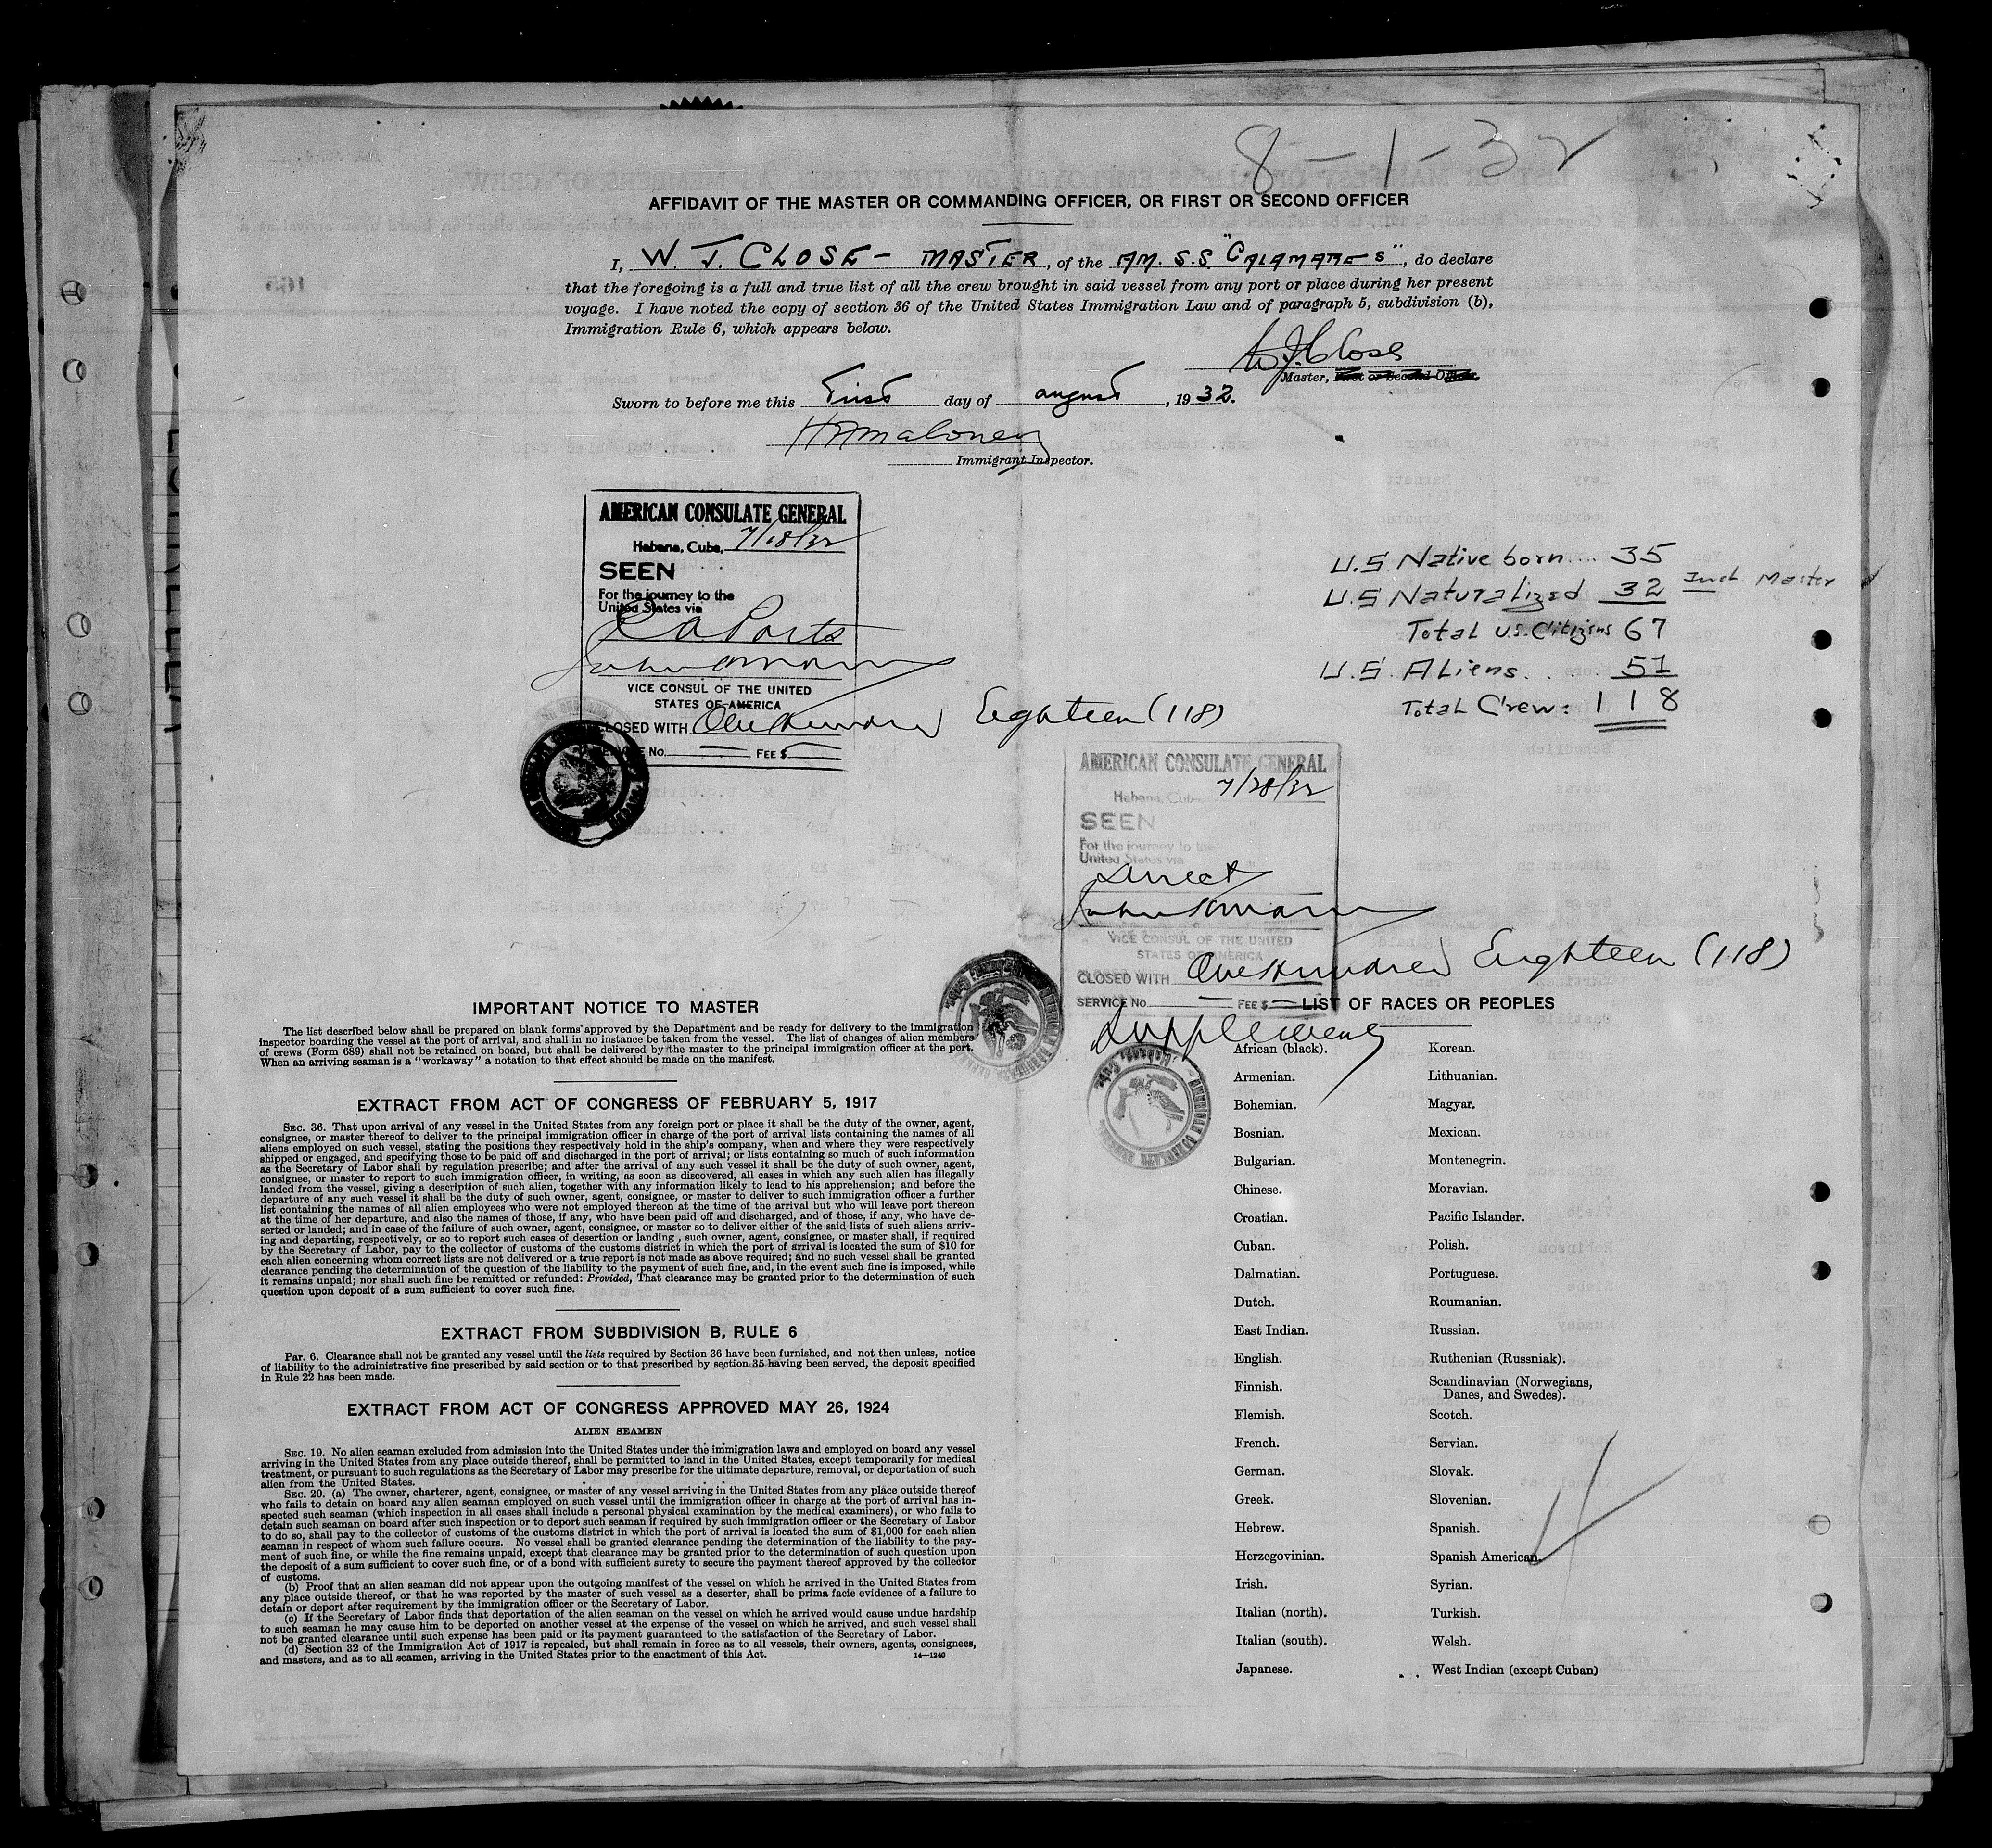 8-1-32
AFFIDAVIT OF THE MASTER OR COMMANDING OFFICER, OR FIRST OR SECOND OFFICER
I, W. J. CLOSE - MASTER, of the AM. S.S. "CALAMARES", do declare
that the foregoing is a full and true list of all the crew brought in said vessel from any port or place during her present
voyage. I have noted the copy of section 36 of the United States Immigration Law and of paragraph 5, subdivision (b),
Immigration Rule 6, which appears below.
W J Close
Master, First or Second Officer
Sworn to before me this First day of august, 1932.
Maloney
Immigrant Inspector.
AMERICAN CONSULATE GENERAL
Habana, Cuba, 7/18/32
SEEN
For the journey to the
United States via
Ports
VICE CONSUL OF THE UNITED
STATES OF AMERICA
CLOSED WITH One Hundred Eighteen (118)
SERVICE No. FEE $
U.S Native born.... 35
U.S Naturalized 32 Incl. Master
Total U.S. Citizens 67
U.S. Aliens..... 51
Total Crew: 118
AMERICAN CONSULATE GENERAL
Habana, Cuba 7/28/32
SEEN
For the journey to the
United States via
Direct
VICE CONSUL OF THE UNITED
STATES OF AMERICA
CLOSED WITH One Hundred Eighteen (118)
SERVICE No. FEE $
Supplement
IMPORTANT NOTICE TO MASTER
The list described below shall be prepared on blank forms approved by the Department and be ready for delivery to the immigration
inspector boarding the vessel at the port of arrival, and shall in no instance be taken from the vessel. The list of changes of alien members
of crews (Form 689) shall not be retained on board, but shall be delivered by the master to the principal immigration officer at the port.
When an arriving seaman is a "workaway" a notation to that effect should be made on the manifest.
EXTRACT FROM ACT OF CONGRESS OF FEBRUARY 5, 1917
SEC. 36. That upon arrival of any vessel in the United States from any foreign port or place it shall be the duty of the owner, agent,
consignee, or master thereof to deliver to the principal immigration officer in charge of the port of arrival lists containing the names of all
aliens employed on such vessel, stating the positions they respectively hold in the ship's company, when and where they were respectively
shipped or engaged, and specifying those to be paid off and discharged in the port of arrival; or lists containing so much of such information
as the Secretary of Labor shall by regulation prescribe; and after the arrival of any such vessel it shall be the duty of such owner, agent,
consignee, or master to report to such immigration officer, in writing, as soon as discovered, all cases in which any such alien has illegally
landed from the vessel, giving a description of such alien, together with any information likely to lead to his apprehension; and before the
departure of any such vessel it shall be the duty of such owner, agent, consignee, or master to deliver to such immigration officer a further
list containing the names of all alien employees who were not employed thereon at the time of the arrival but who will leave port thereon
at the time of her departure, and also the names of those, if any, who have been paid off and discharged, and of those, if any, who have de-
serted or landed; and in case of the failure of such owner, agent, consignee, or master so to deliver either of the said lists of such aliens arriv-
ing and departing, respectively, or so to report such cases of desertion or landing , such owner, agent, consignee, or master shall, if required
by the Secretary of Labor, pay to the collector of customs of the customs district in which the port of arrival is located the sum of $10 for
each alien concerning whom correct lists are not delivered or a true report is not made as above required; and no such vessel shall be granted
clearance pending the determination of the question of the liability to the payment of such fine, and, in the event such fine is imposed, while
it remains unpaid; nor shall such fine be remitted or refunded: Provided, That clearance may be granted prior to the determination of such
question upon deposit of a sum sufficient to cover such fine.
EXTRACT FROM SUBDIVISION B, RULE 6
Par. 6. Clearance shall not be granted any vessel until the lists required by Section 36 have been furnished, and not then unless, notice
of liability to the administrative fine prescribed by said section or to that prescribed by section 35 having been served, the deposit specified
in Rule 22 has been made.
EXTRACT FROM ACT OF CONGRESS APPROVED MAY 26, 1924
ALIEN SEAMEN
SEC. 19. No alien seaman excluded from admission into the United States under the immigration laws and employed on board any vessel
arriving in the United States from any place outside thereof, shall be permitted to land in the United States, except temporarily for medical
treatment, or pursuant to such regulations as the Secretary of Labor may prescribe for the ultimate departure, removal, or deportation of such
alien from the United States.
SEC. 20. (a) The owner, charterer, agent, consignee, or master of any vessel arriving in the United States from any place outside thereof
who fails to detain on board any alien seaman employed on such vessel until the immigration officer in charge at the port of arrival has in-
spected such seaman (which inspection in all cases shall include a personal physical examination by the medical examiners), or who fails to
detain such seaman on board after such inspection or to deport such seaman if required by such immigration officer or the Secretary of Labor
to do so, shall pay to the collector of customs of the customs district in which the port of arrival is located the sum of $1,000 for each alien
seaman in respect of whom such failure occurs. No vessel shall be granted clearance pending the determination of the liability to the pay-
ment of such fine, or while the fine remains unpaid, except that clearance may be granted prior to the determination of such question upon
the deposit of a sum sufficient to cover such fine, or of a bond with sufficient surety to secure the payment thereof approved by the collector
of customs.
(b) Proof that an alien seaman did not appear upon the outgoing manifest of the vessel on which he arrived in the United States from
any place outside thereof, or that he was reported by the master of such vessel as a deserter, shall be prima facie evidence of a failure to
detain or deport after requirement by the immigration officer or the Secretary of Labor.
(c) If the Secretary of Labor finds that deportation of the alien seaman on the vessel on which he arrived would cause undue hardship
to such seaman he may cause him to be deported on another vessel at the expense of the vessel on which he arrived, and such vessel shall
not be granted clearance until such expense has been paid or its payment guaranteed to the satisfaction of the Secretary of Labor.
(d) Section 32 of the Immigration Act of 1917 is repealed, but shall remain in force as to all vessels, their owners, agents, consignees,
and masters, and as to all seamen, arriving in the United States prior to the enactment of this Act.
14—1240
LIST OF RACES OR PEOPLES
African (black).
Armenian.
Bohemian.
Bosnian.
Bulgarian.
Chinese.
Croatian.
Cuban.
Dalmatian.
Dutch.
East Indian.
English.
Finnish.
Flemish.
French.
German.
Greek.
Hebrew.
Herzegovinian.
Irish.
Italian (north).
Italian (south).
Japanese.
Korean.
Lithuanian.
Magyar.
Mexican.
Montenegrin.
Moravian.
Pacific Islander.
Polish.
Portuguese.
Roumanian.
Russian.
Ruthenian (Russniak).
Scandinavian (Norwegians,
Danes, and Swedes).
Scotch.
Servian.
Slovak.
Slovenian.
Spanish.
Spanish American.
Syrian.
Turkish.
Welsh.
West Indian (except Cuban)